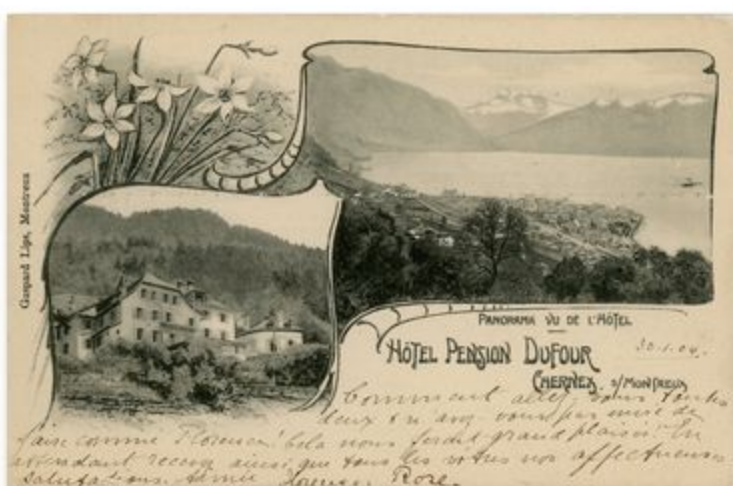 Gaspard Lips, Montreux
PANORAMA VU DE L'HÔTEL
HÔTEL PENSION DUFOUR
CHERNEX s/MONTREUX
30.1.04.
Comment allez-vous toutes
deux
faire comme Florence! Cela nous ferait grand plaisir. En
attendant recevez ainsi que tous les vôtres nos affectueuses
salutations. Florence Rose.